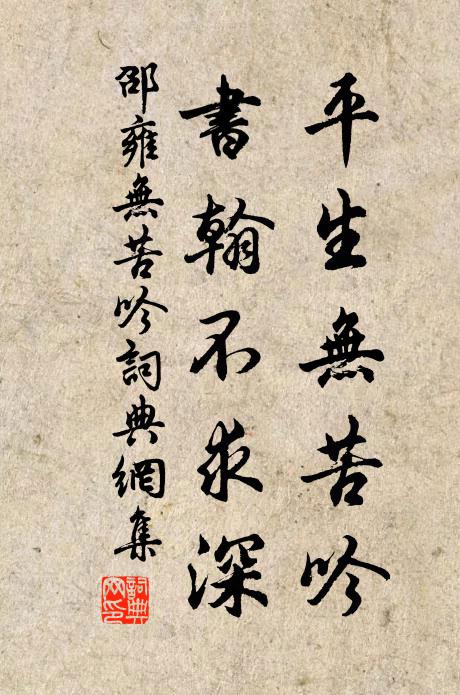 平生無苦吟
書翰不求深
邵雍無苦吟詞典網集
詞典网印